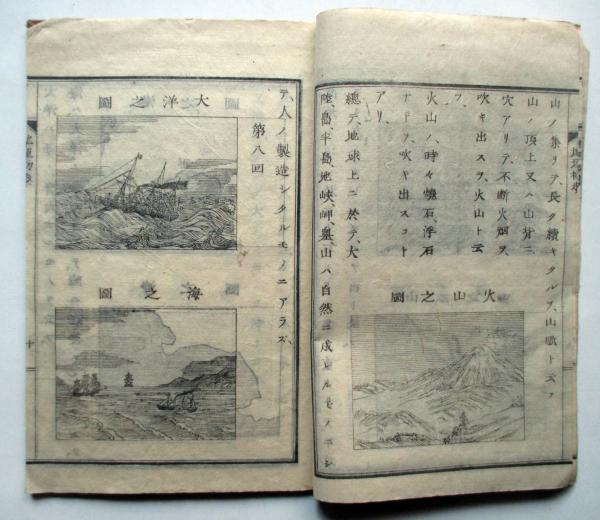 山ノ集リテ、長ク續キタルヲ、山脈ト云フ
山ノ頂上又ハ山脊ニ、
穴アリテ、不斷火烟ヲ、
吹キ出スヲ、火山ト云
フ、
火山ハ、時々燒石、浮石
ナドヲ、吹キ出スコト
アリ、
火山之圖
總テ、地球上ニ於テ、大
陸、島、半島、地峽、岬、山ハ、自然ニ成立ルモノニシ
テ、人ノ製造シタルモノニアラズ、
第八回
大洋之圖
海之圖
十